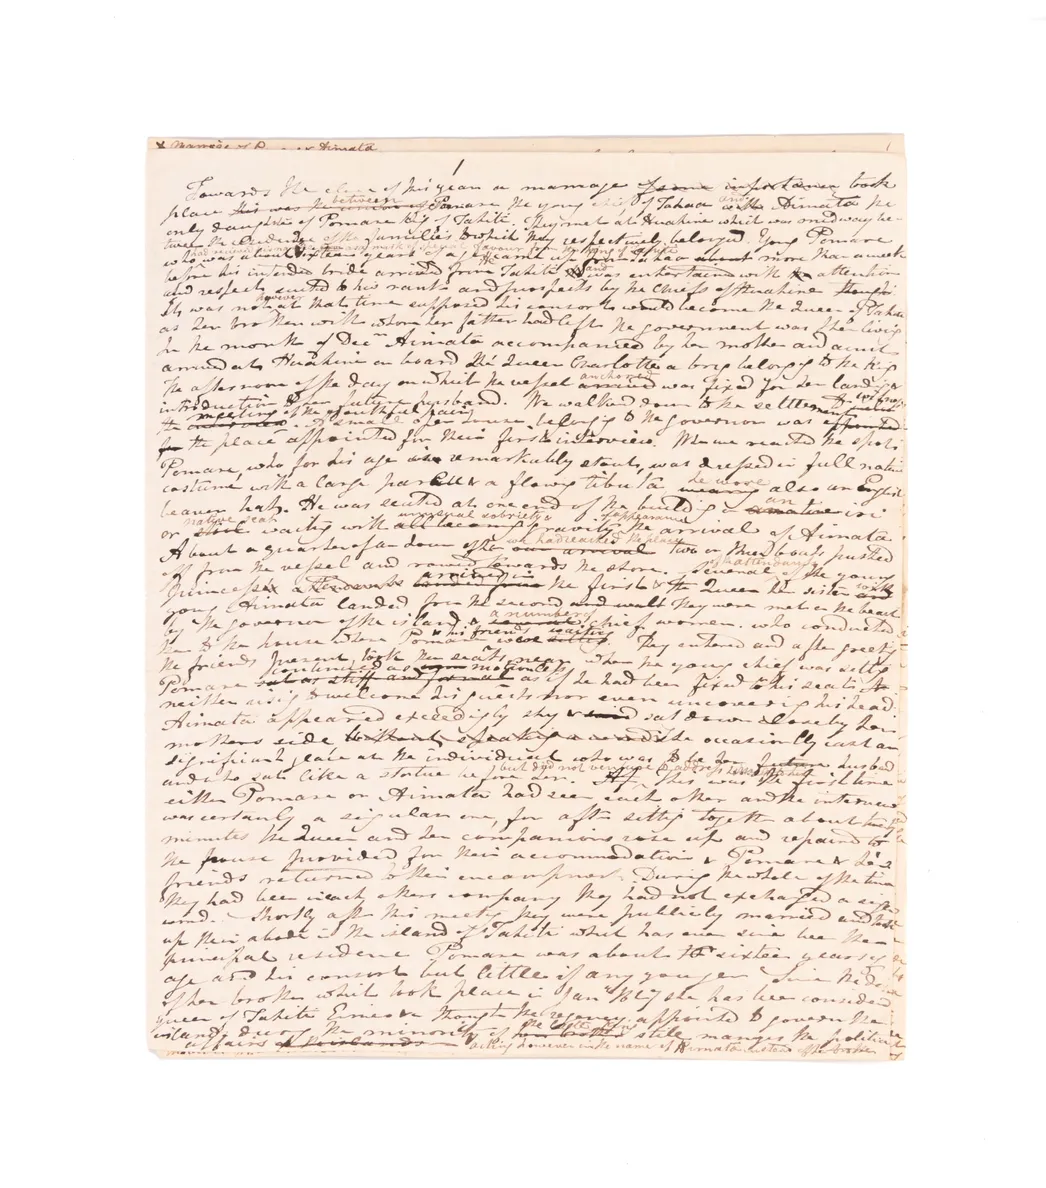 Marriage of P & Aimata
1
Towards the close of this year a marriage of some importance took
place this was the union of between Pomare the young chief of Tahaa and with Aimata the
only daughter of Pomare King of Tahiti. They met at Huahine which was midway be-
tween the residence of the families to which they respectively belonged. Young Pomare
who was about sixteen years of age
before his intended bride arrived from Tahiti & and was entertained with the attention
and respect suited to his rank and prospects by the chiefs of Huahine though
It was not however at that time supposed his consort would become the Queen of Tahiti
as her brother with whom her father had left the government was then living
In the month of Decr Aimata accompanied by her mother and aunt
arrived at Huahine on board the Queen Charlotte a brig belongg to the King
The afternoon of the day on which the vessel arrived anchored was fixed for her landing &
introduction to her future husband. We walked down to the settlement
the meeting of the youthful pair. A small open house belongg to the governor was appointed
for the place appointed for their first interview. When we reached the spot
Pomare, who for his age was remarkably stout, was dressed in full native
costume with a large pareu & a flowing tibuta he wore wearing also an English
beaver hat. He was seated at one end of the building on a native an iri
or native seat waiting with all becoming unusual sobriety & gravity of appearance the arrival of Aimata
About a quarter of an hour after our arrival we had reached the place two or three boats pushed
off from the vessel and rowed towards the shore. Several of the young
Princess's attendants arrived in the first & the Queen her sister and with
young Aimata landed from the second and walk They were met on the beach
by the governor of the island & several a number of chief women. who conducted
them to the house where Pomare & his friends were sitting waiting They entered and after greeting
the friends present, took their seats near where the young chief was sitting
Pomare sat as stiff and formal continued as motionless as if he had been fixed to his seat
neither rising to welcome his guests nor even uncovering his head.
Aimata appeared exceedingly shy & sat down close by her
mothers side without speaking a word she occasionly cast an
significant glance at the individual who was to be her future husband
and who sat like a statue before her. but did not venture to address This was the first time
either Pomare or Aimata had seen each other and the interview
was certainly a singular one, for after sitting together about twenty
minutes the Queen and her companions rose up and repaired to
the house provided for their accommodation & Pomare & his
friends returned to their encampment. During the whole of the time
they had been in each others company they had not exchanged a single
word. Shortly after this meeting they were publicly married and took
up their abode in the island of Tahiti which has ever since been their
principal residence Pomare was about 16 sixteen years of
age and his consort but little if any younger Since the death
of her brother which took place in Jany 1827 she has been considered
Queen of Tahiti Eimeo & though the regency appointed to govern the
islands during the minority of her brother the late King still manages the political
affairs of the islands acting however in the name of Aimata instead of her brother